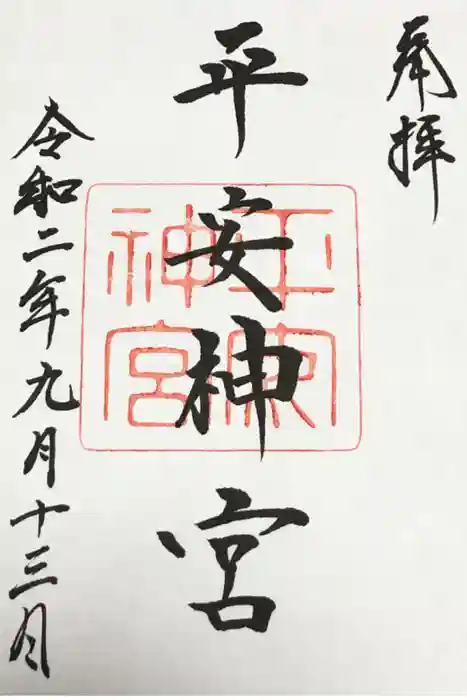 奉拝
平安神宮
令和二年九月十三日
神宮